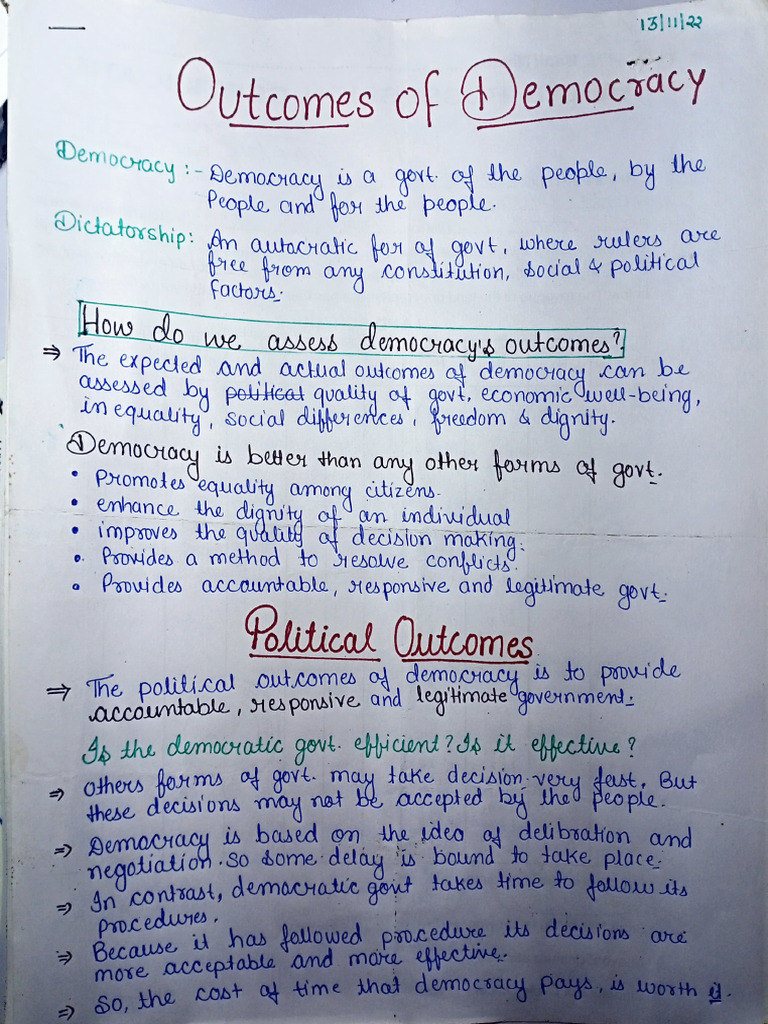 13/11/22
Outcomes of Democracy
Democracy :- Democracy is a govt. of the people, by the
People and for the people.
Dictatorship: An autocratic for of govt, where rulers are
free from any constitution, social & political
factors.
How do we assess democracy's outcomes?
⇒ The expected and actual outcomes of democracy can be
assessed by political quality of govt, economic well-being,
inequality, social differences, freedom & dignity.
Democracy is better than any other forms of govt.
• Promotes equality among citizens.
• enhance the dignity of an individual
• improves the quality of decision making.
• Provides a method to resolve conflicts.
• Provides accountable, responsive and legitimate govt.
Political Outcomes
⇒ The political outcomes of democracy is to provide
accountable, responsive and legitimate government.
Is the democratic govt. efficient? Is it effective?
⇒ Others forms of govt. may take decision very fast, But
these decisions may not be accepted by the people.
⇒ Democracy is based on the idea of delibration and
negotiation. So some delay is bound to take place.
⇒ In contrast, democratic govt takes time to follow its
procedures.
⇒ Because it has followed procedure its decisions are
more acceptable and more effective.
⇒ So, the cost of time that democracy pays, is worth it.